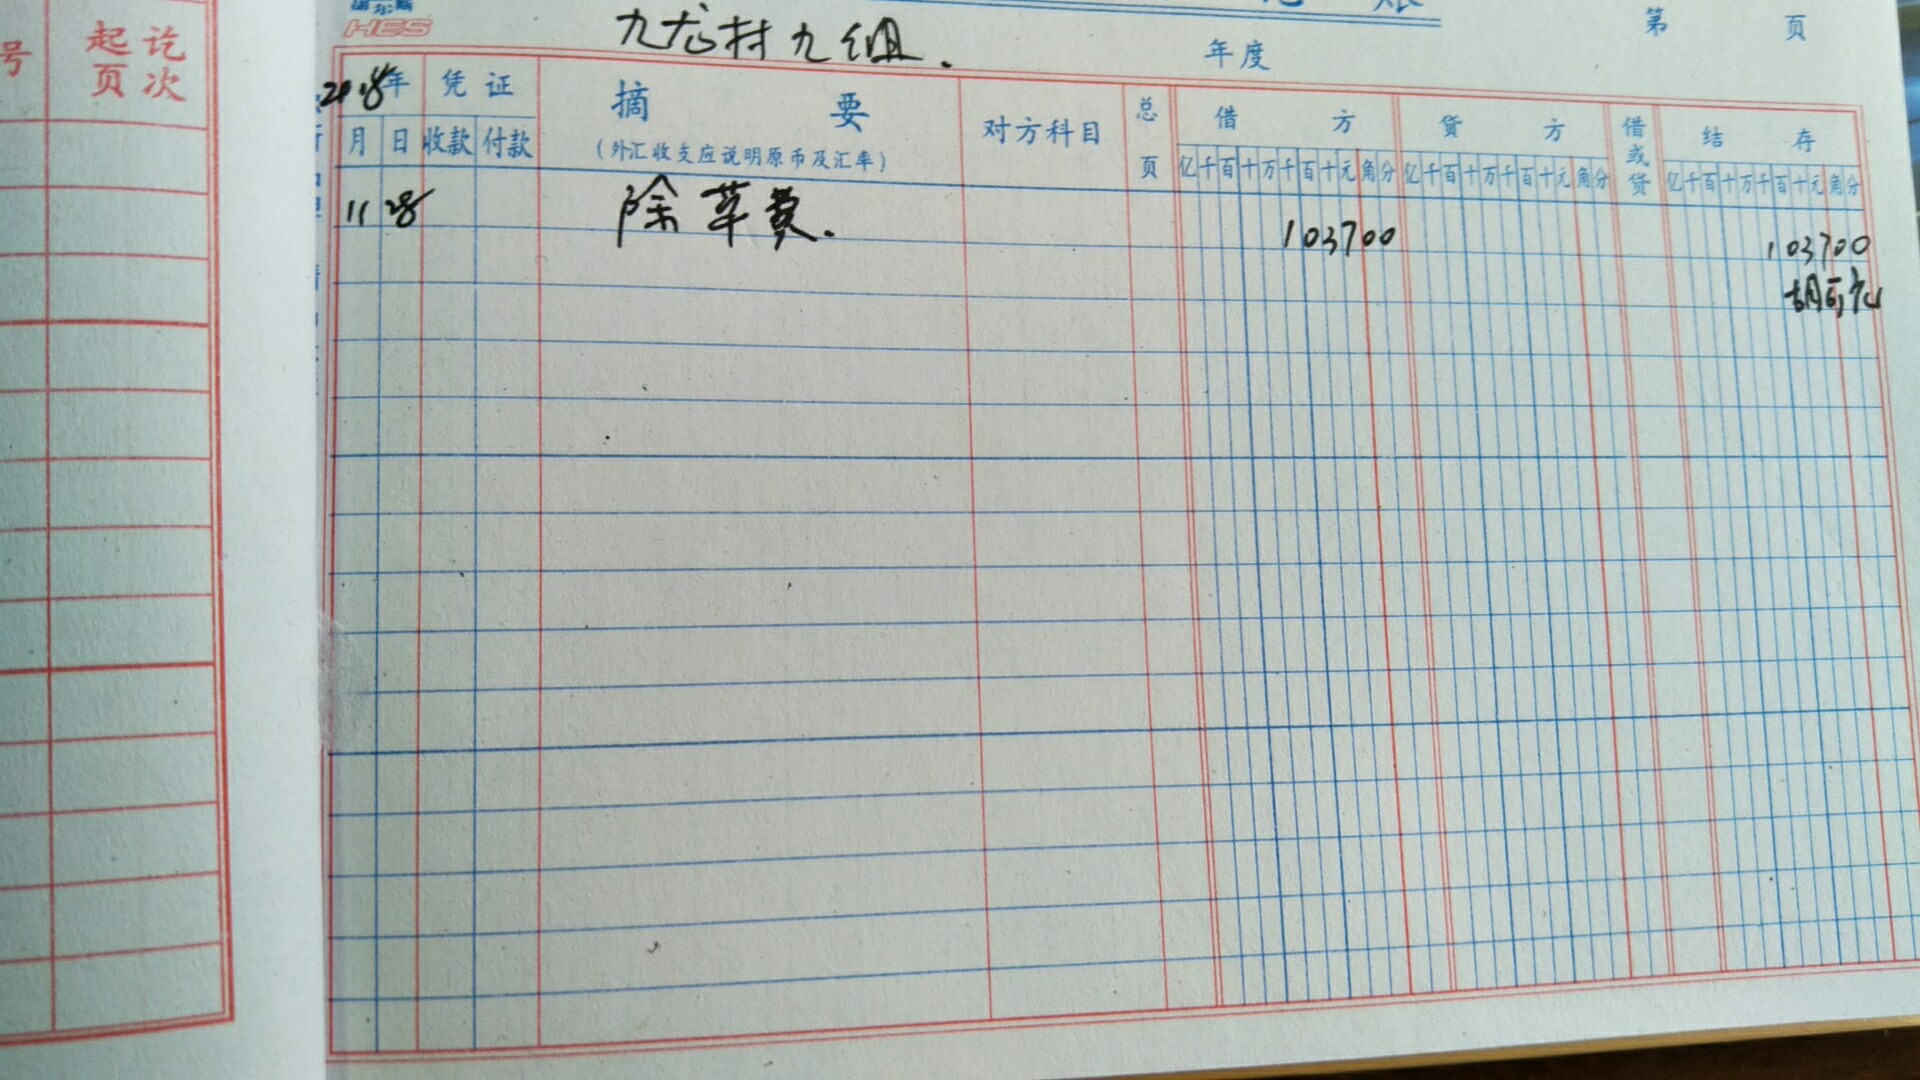 号 起讫页次
HES
九龙村九组.
年度
第 页
2018年 凭证 摘要 对方科目 总页 借方 贷方 借或贷 结存
月 日 收款 付款 (外汇收支应说明原币及汇率) 亿千百十万千百十元角分 亿千百十万千百十元角分 亿千百十万千百十元角分
11 28 除草费. 103700 103700
胡